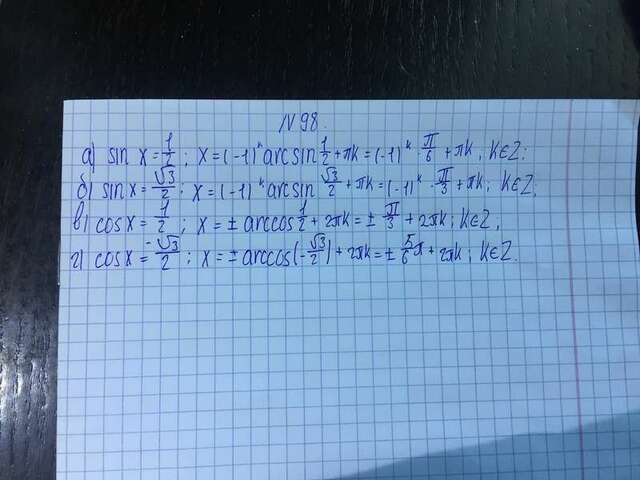 N98.
а) sin x = 1/2; x = (-1)^k arcsin 1/2 + πk = (-1)^k · π/6 + πk, k∈Z;
б) sin x = √3/2; x = (-1)^k arcsin √3/2 + πk = (-1)^k · π/3 + πk, k∈Z;
в) cos x = 1/2; x = ± arccos 1/2 + 2πk = ± π/3 + 2πk; k∈Z,
г) cos x = -√3/2; x = ± arccos(-√3/2) + 2πk = ± 5/6 π + 2πk; k∈Z.